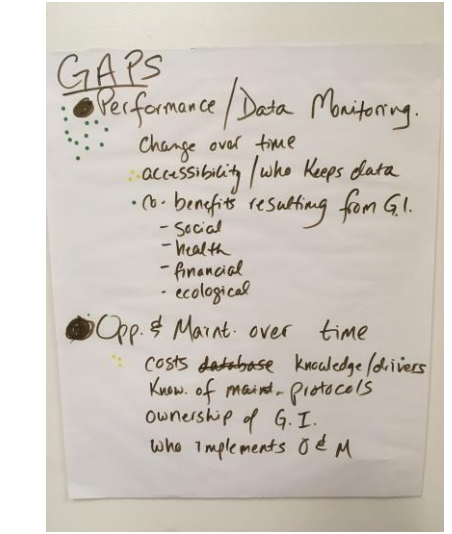 GAPS
Performance / Data Monitoring.
Change over time
accessibility / who keeps data
Co-benefits resulting from G.I.
- Social
- health
- financial
- ecological
Opp. & Maint. over time
costs database knowledge/drivers
Know. of maint. protocols
ownership of G.I.
who implements O & M